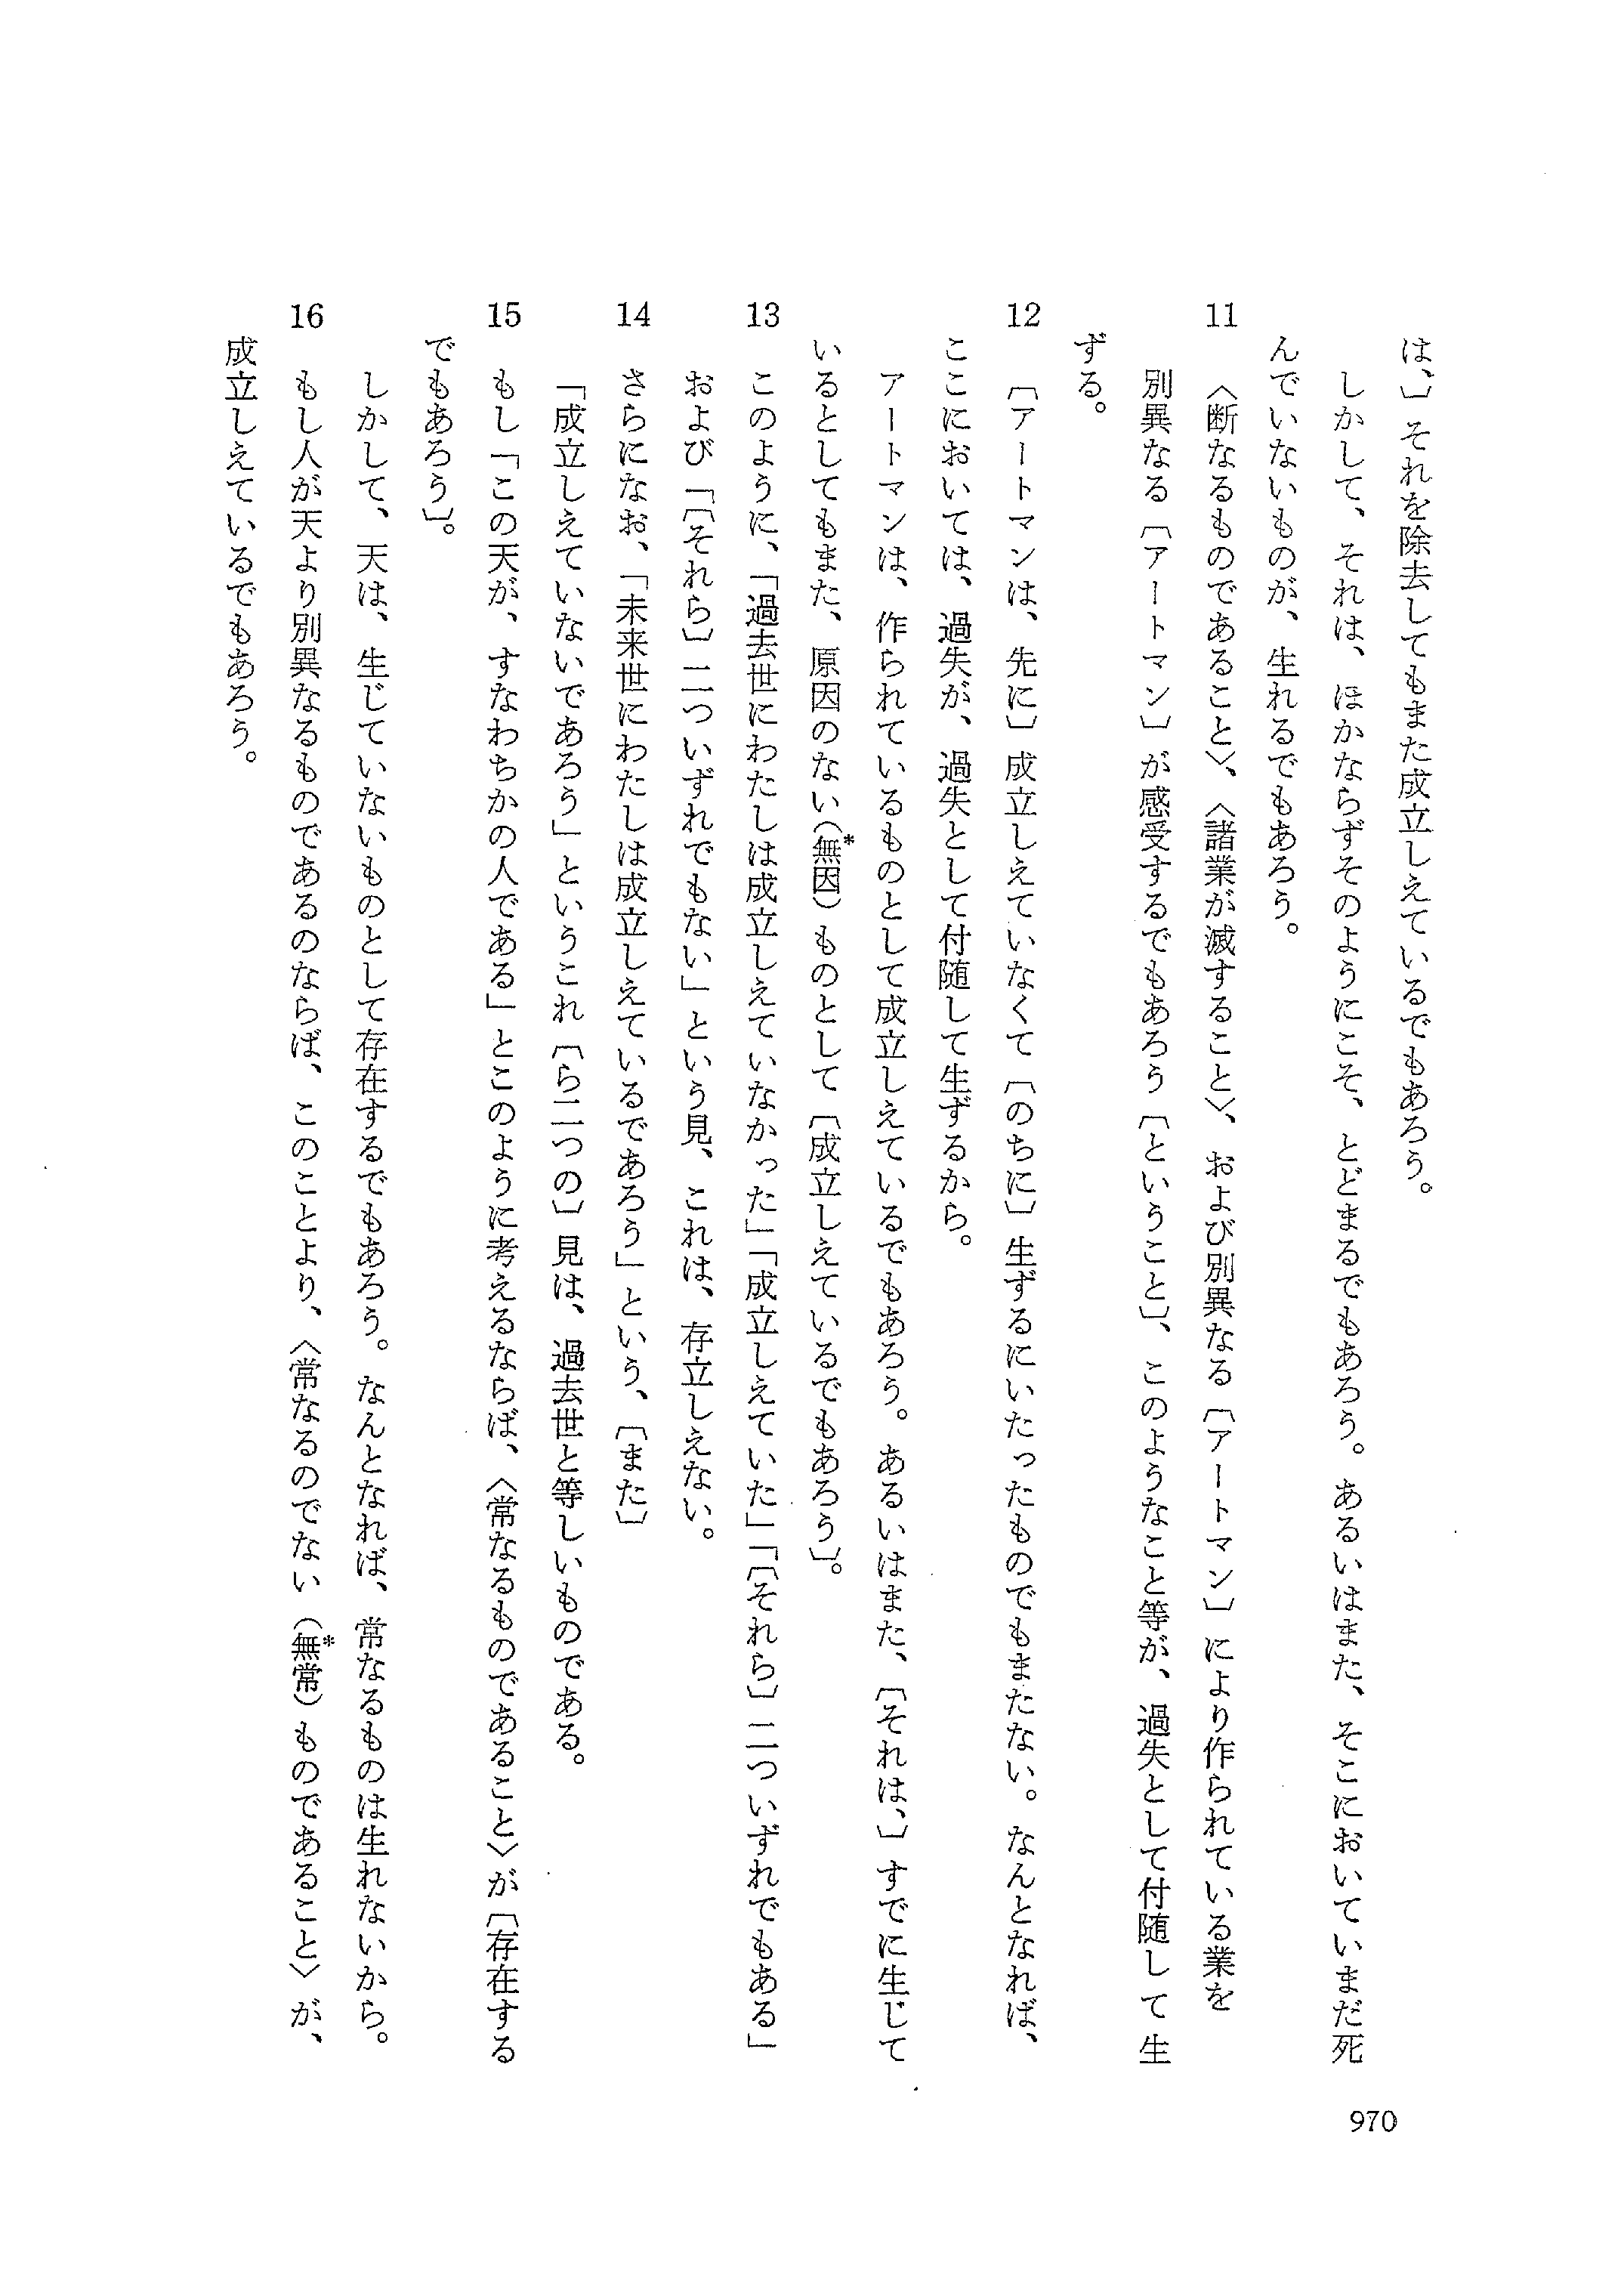 は、〕それを除去してもまた成立しえているでもあろう。
しかして、それは、ほかならずそのようにこそ、とどまるでもあろう。あるいはまた、そこにおいていまだ死
んでいないものが、生れるでもあろう。
11 〈断なるものであること〉、〈諸業が滅すること〉、および別異なる〔アートマン〕により作られている業を
別異なる〔アートマン〕が感受するでもあろう〔ということ〕、このようなこと等が、過失として付随して生
ずる。
12 〔アートマンは、先に〕成立しえていなくて〔のちに〕生ずるにいたったものでもまたない。なんとなれば、
ここにおいては、過失が、過失として付随して生ずるから。
アートマンは、作られているものとして成立しえているでもあろう。あるいはまた、〔それは、〕すでに生じて
いるとしてもまた、原因のない(無因*)ものとして〔成立しえているでもあろう〕。
13 このように、「過去世にわたしは成立しえていなかった」「成立しえていた」「〔それら〕二ついずれでもある」
および「〔それら〕二ついずれでもない」という見、これは、存立しえない。
14 さらになお、「未来世にわたしは成立しえているであろう」という、〔また〕
「成立しえていないであろう」というこれ〔ら二つの〕見は、過去世と等しいものである。
15 もし「この天が、すなわちかの人である」とこのように考えるならば、〈常なるものであること〉が〔存在する
でもあろう〕。
しかして、天は、生じていないものとして存在するでもあろう。なんとなれば、常なるものは生れないから。
16 もし人が天より別異なるものであるのならば、このことより、〈常なるのでない(無常*)ものであること〉が、
成立しえているでもあろう。
970